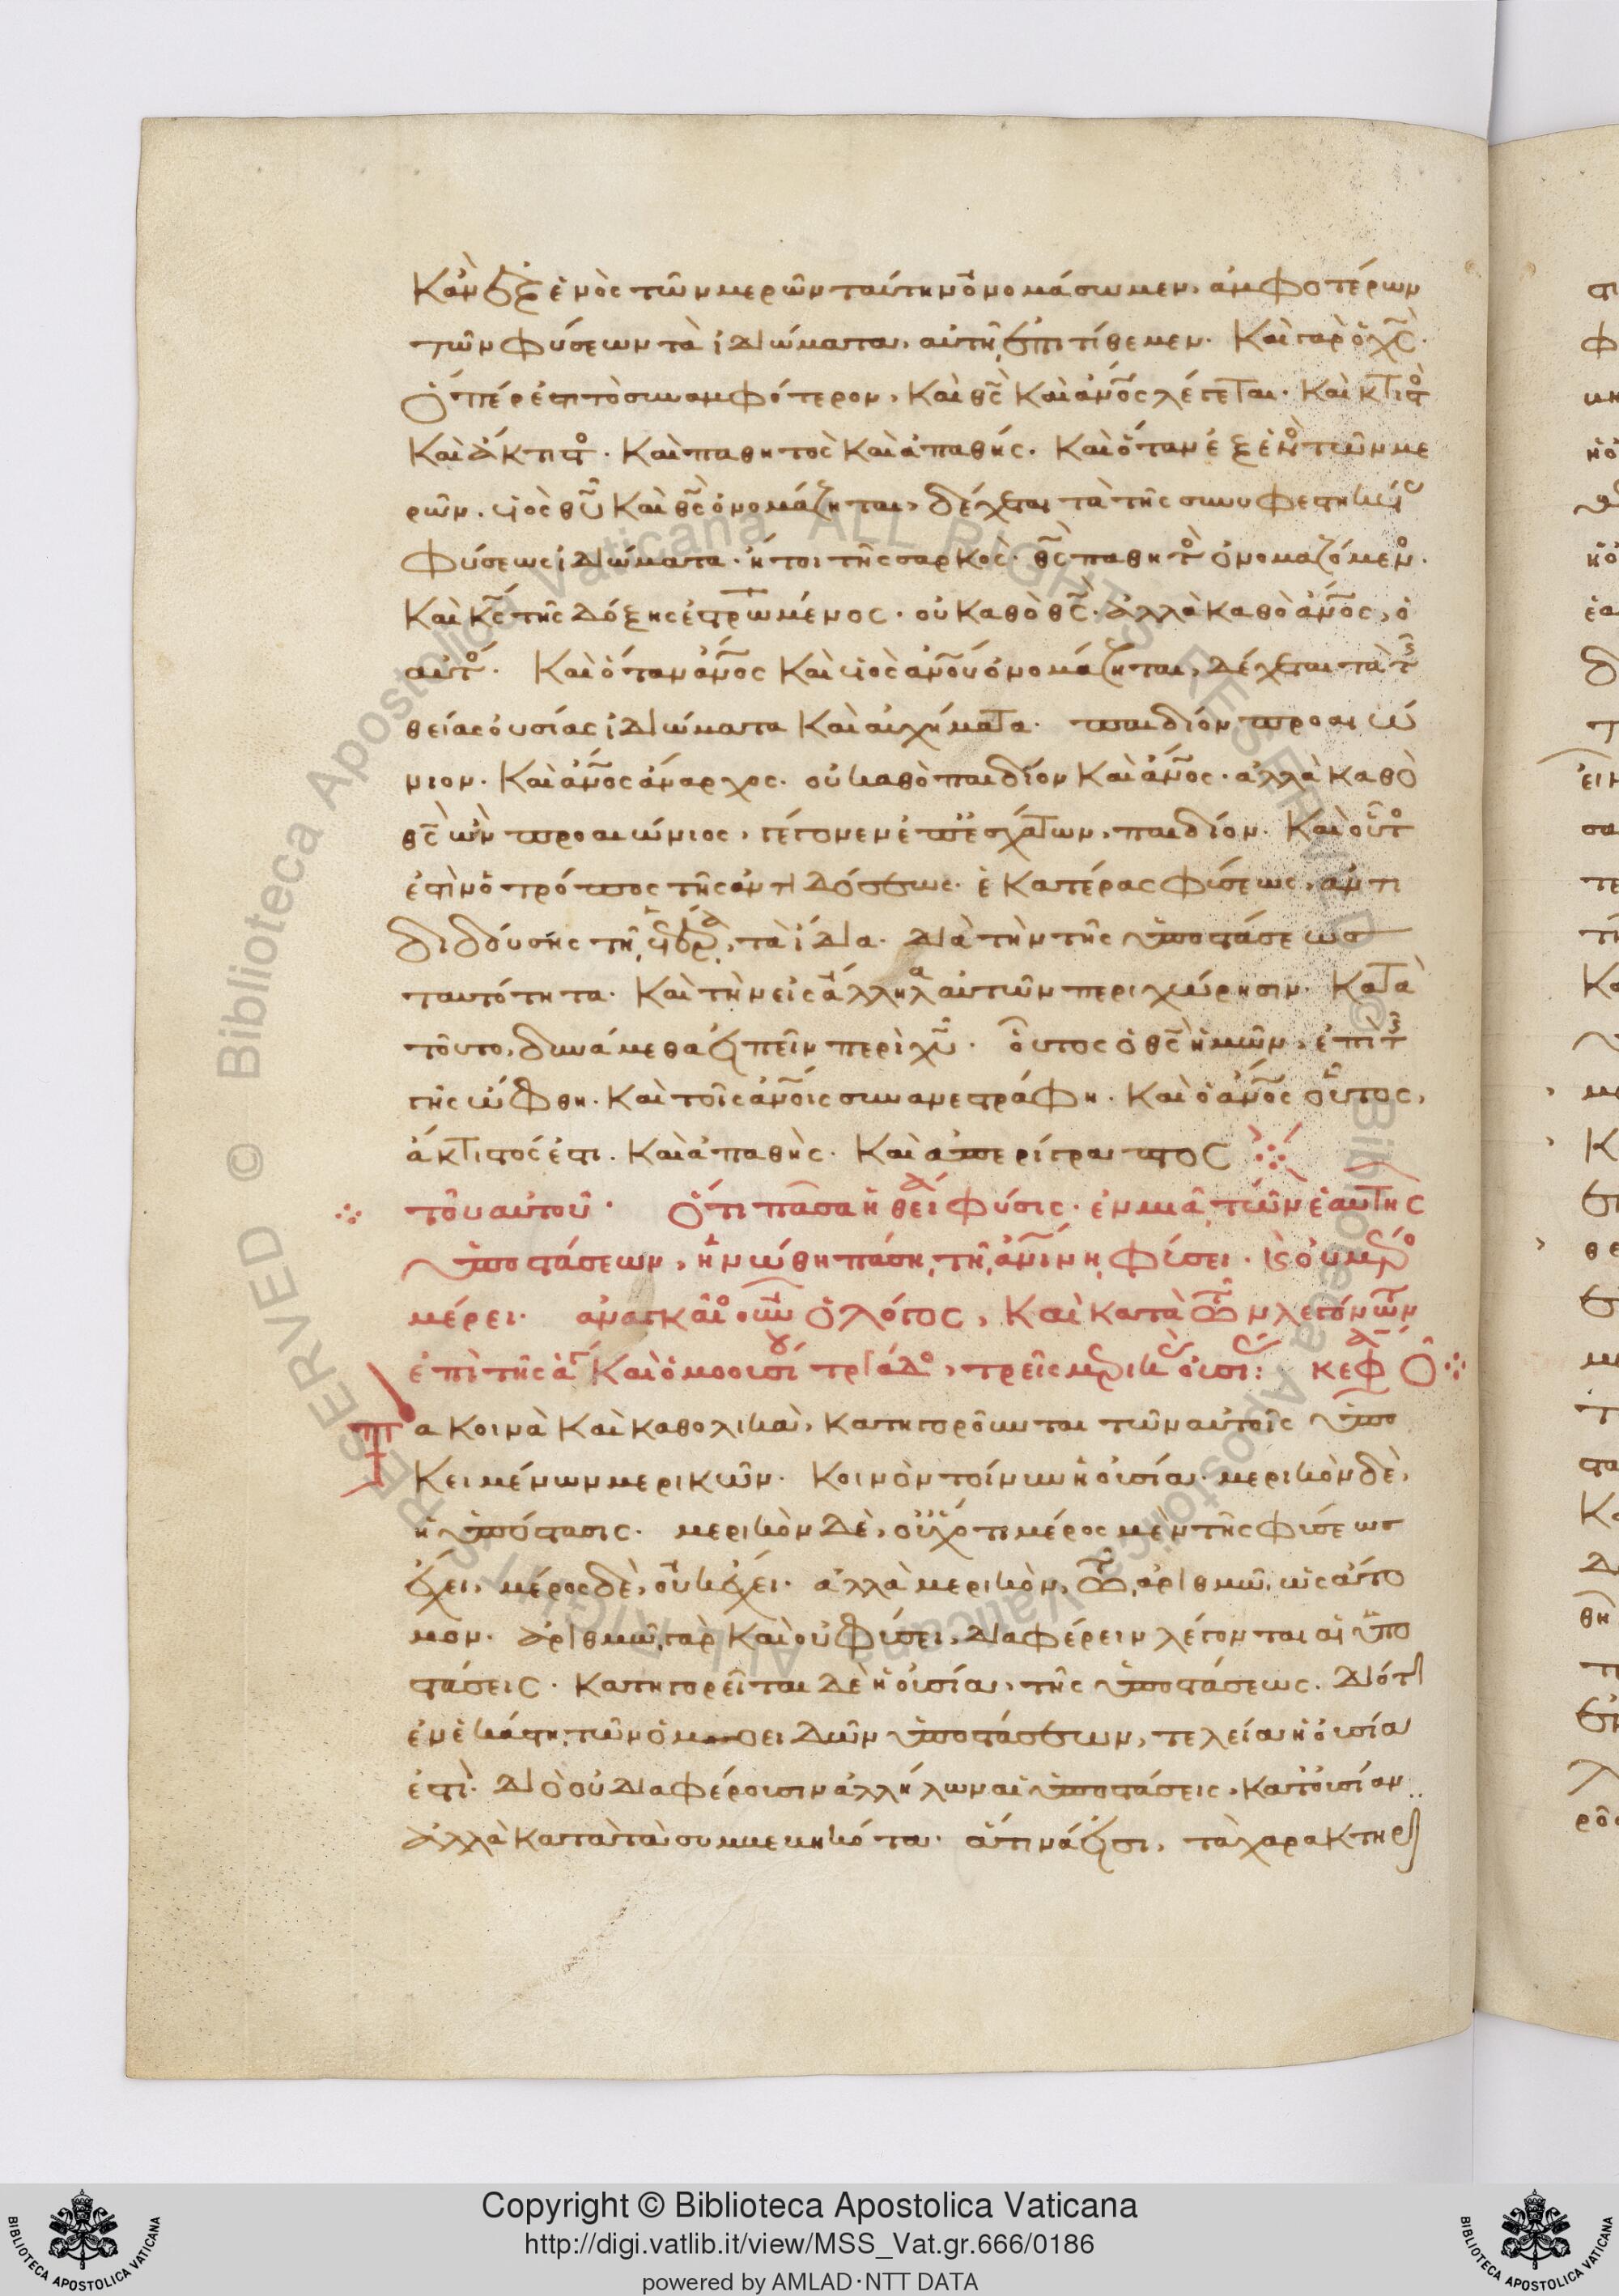 κἂν ἐξ ἑνὸς τῶν μερῶν ταύτην ὀνομάσωμεν, ἀμφοτέρων
τῶν φύσεων τὰ ἰδιώματα, αὐτῇ ἐπιτίθεμεν. καὶ γὰρ ὁ χς.
ὅπέρ ἐστι τὸ συναμφότερον, καὶ θς καὶ ἄνος λέγεται. καὶ κτιστὸς
καὶ ἄκτιστος. καὶ παθητὸς καὶ ἀπαθής. καὶ ὅταν ἐξ ἑνὸς τῶν με
ρῶν. υἱὸς θυ καὶ θς ὀνομάζηται, δέχεται τὰ τῆς συνυφεστηκυίας
φύσεως ἰδιώματα. ἤτοι τῆς σαρκός. θς παθητὸς ὀνομαζόμενος.
καὶ κς τῆς δόξης ἐστρωμένος. οὐ καθὸ θς. ἀλλὰ καθὸ ἄνος, ὁ
αὐτός. καὶ ὅταν ἄνος καὶ υἱὸς ἀνου ὀνομάζηται, δέχεται τὰ τῆς
θείας οὐσίας ἰδιώματα καὶ αὐχήματα. παιδίον προαιώ
νιον. καὶ ἄνος ἄναρχος. οὐ καθὸ παιδίον καὶ ἄνος. ἀλλὰ καθὸ
θς ὢν προαιώνιος, γέγονεν ἐπ' ἐσχάτων, παιδίον. καὶ οὗτος
ἐστὶν ὁ τρόπος τῆς ἀντιδόσεως. ἑκατέρας φύσεως, ἀντι
διδούσης τῇ ἑτέρᾳ, τὰ ἴδια. διὰ τὴν τῆς ὑποστάσεως
ταυτότητα. καὶ τὴν εἰς ἄλληλα αὐτῶν περιχώρησιν. κατὰ
τοῦτο, δυνάμεθα εἰπεῖν περὶ χυ. οὗτος ὁ θς ἡμῶν, ἐπὶ τῆς
γῆς ὤφθη. καὶ τοῖς ἀνοις συνανεστράφη. καὶ ὁ ἄνος οὗτος,
ἄκτιστός ἐστι. καὶ ἀπαθὴς. καὶ ἀπερίγραπτος
τοῦ αὐτοῦ. Ὅτι πᾶσα ἡ θεία φύσις. ἐν μιᾷ τῶν ἑαυτῆς
ὑποστάσεων, ἡνώθη πάσῃ τῇ ἀνινῃ φύσει. καὶ οὐ μέρος
μέρει. ἀναγκαῖος οὗτος ὁ λόγος, καὶ κατὰ τῶν λεγόντων
ἐπὶ τῆς ἁγίας καὶ ὁμοουσίου τριάδος, τρεῖς μερικὰς οὐσίας: κεφ Ο
Τα κοινὰ καὶ καθολικὰ, κατηγοροῦνται τῶν αὐτοῖς ὑπο
κειμένων μερικῶν. κοινὸν τοίνυν ἡ οὐσία. μερικὸν δὲ,
ἡ ὑπόστασις. μερικὸν δὲ, οὐχ ὅτι μέρος μὲν τῆς φύσεως
ἔχει, μέρος δὲ, οὐκ ἔχει. ἀλλὰ μερικὸν, τῷ ἀριθμῷ, ὡς ἄτο
μον. ἀριθμῷ γὰρ καὶ οὐ φύσει, διαφέρειν λέγονται αἱ ὑπο
στάσεις. κατηγορεῖται δὲ ἡ οὐσία, τῆς ὑποστάσεως. διότι
ἐν ἑκάστῃ τῶν ὁμοειδῶν ὑποστάσεων, τελεία ἡ οὐσία
ἐστὶ. διὸ οὐ διαφέρουσιν ἀλλήλων αἱ ὑποστάσεις, κατ' οὐσίαν.
ἀλλὰ κατὰ τὰ συμβεβηκότα. ἅτινά εἰσι, τὰ χαρακτηρι